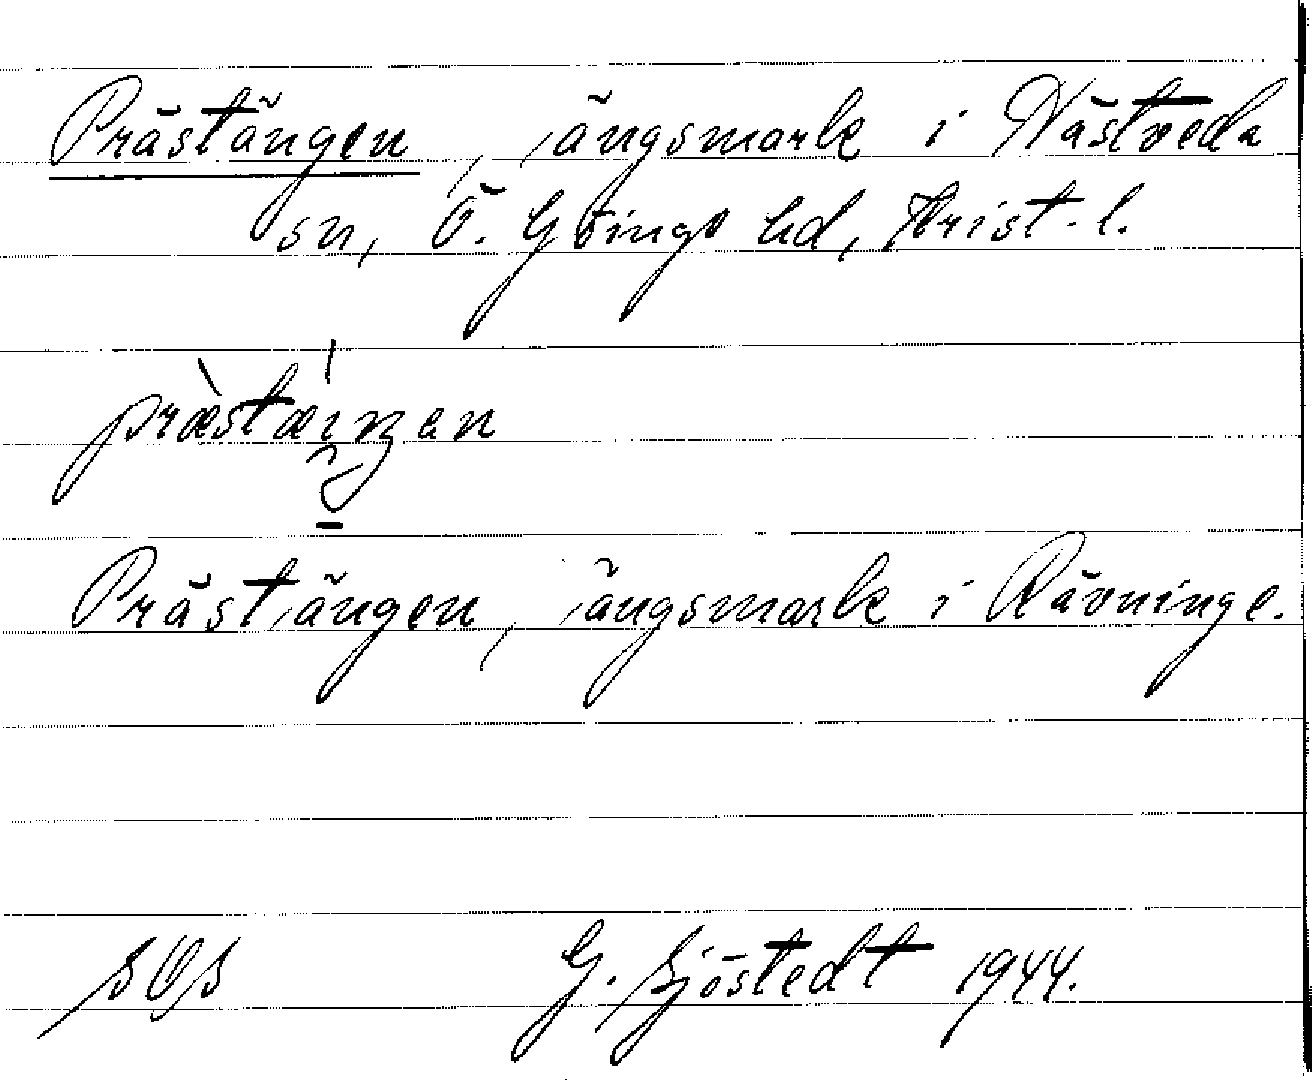 Prästängen, ängsmark i Västveda
sn, Ö. Göinge hd, Krist. l.
præstæiŋen
Prästängen, ängsmark i Rävninge.
SOS G. Sjöstedt 1944.